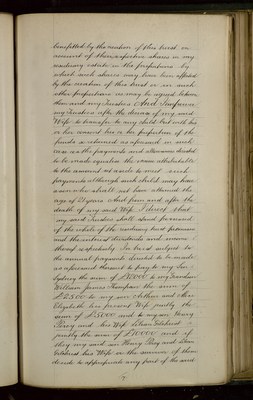 benefitted by the creation of this trust or
amount of their respective shares in my
residuary estate in the proportions by
which such shares may have been affected
by the creation of this trust or in such
other proportions as may be agreed between
them and my Trustees And I empower
my Trustees after the decease of my said
Wife to transfer to any child but with his
or her consent his or her proportion of the
funds so retained as aforesaid in such
case as the payments and allowances directed
to be made equal the income attributable
to the amount set aside to meet such
payments although such child may have
an
age of 21 years And from and after the
death of my said Wife I direct that
my said Trustees shall stand possessed
of the whole of the residuary trust premises
and the interest dividends and income
thereof respectively In trust subject to
the annual payments directed to be made
as aforesaid thereout to pay to my Son
Sydney the sum of £10000 to my Grandson
William James Thompson the sum of
£2500 to my son Arthur and
Elizabeth his present Wife jointly the
sum of £5000 and to my son Henry
Percy and his Wife
jointly the sum of £10000 and if
they my said son Henry Percy and
his Wife or the survivor of them
decide to appropriate any part of the said